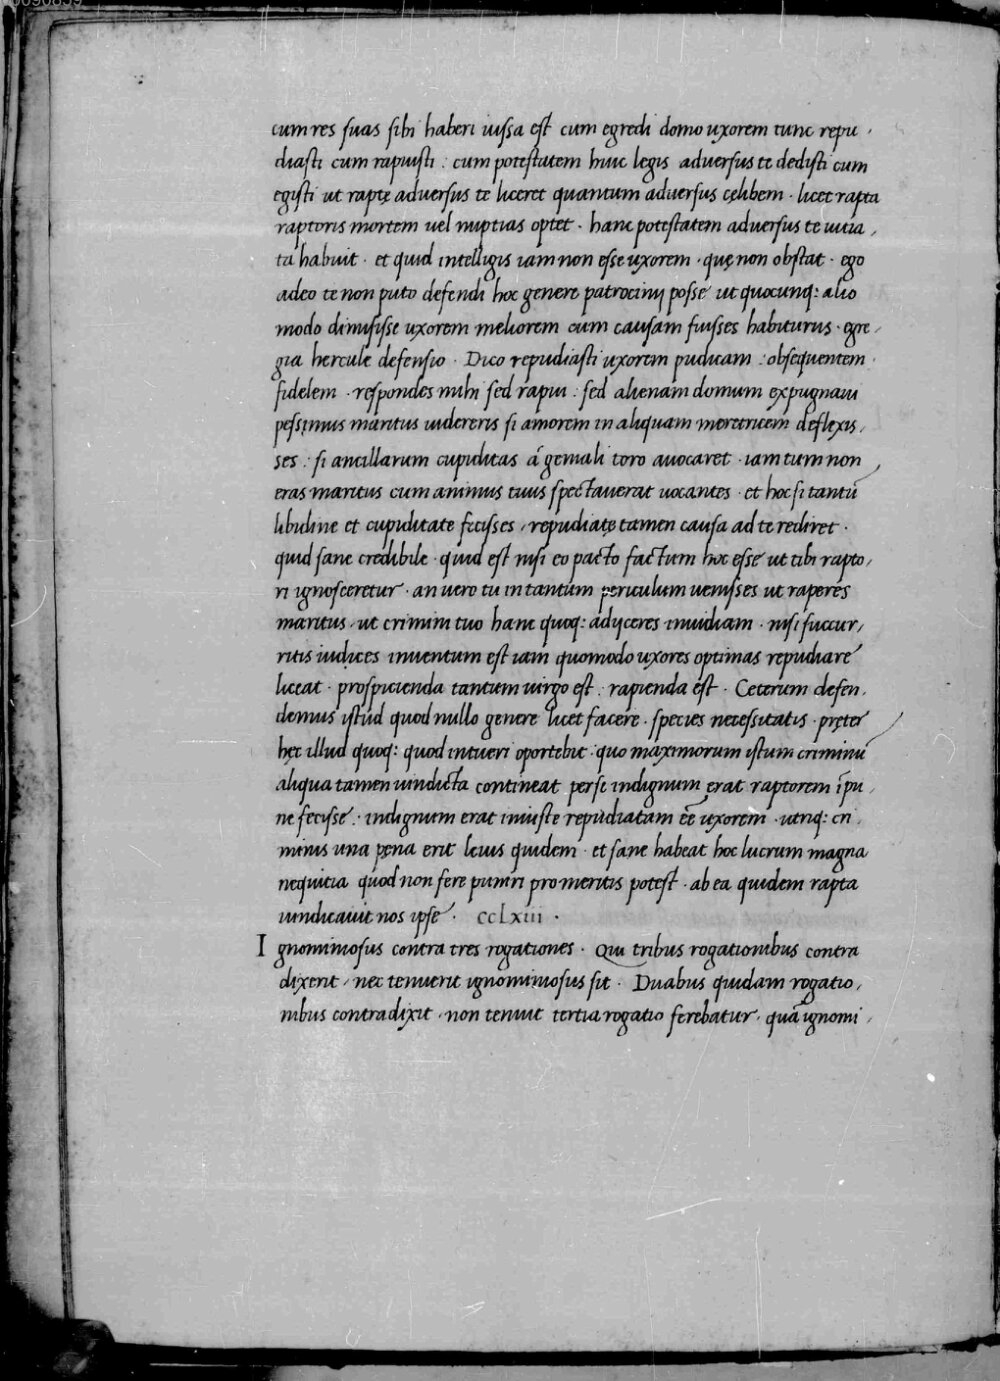 cum res suas sibi haberi iussa est cum egredi domo uxorem tunc repu ·
diasti cum rapuisti : cum potestatem huic legis adversus te dedisti cum
egisti ut raptę adversus te liceret quantum adversus cęlibem · licet rapta
raptoris mortem vel nuptias optet · hanc potestatem adversus te uitia ,
ta habuit · et quid intelligis iam non esse uxorem · quę non obstat · ego
adeo te non puto defendi hoc genere patrocinij posse ut quocunq: alio
modo dimisisse uxorem meliorem cum causam fuisses habiturus · egre ,
gia hercule defensio · Dico repudiasti uxorem pudicam : obsequentem ·
fidelem · respondes mihi sed rapui : sed alienam domum expugnaui
pessimus maritus uidereris si amorem in aliquam meretricem deflexis ,
ses : si ancillarum cupiditas á geniali toro auocaret · iam tum non
eras maritus cum animus tuus spectauerat uocantes · et hoc si tantū
libidine et cupiditate fecisses , repudiatę tamen causa ad te rediret ·
quid sane credibile · quid est nisi eo pacto factum hoc esse ut tibi rapto ,
ri ignosceretur · an uero tu in tantum periculum uenisses ut raperes
maritus , ut crimini tuo hanc quoq: adijceres inuidiam · nisi succur ,
ritis iudices inuentum est iam quomodo uxores optimas repudiare
liceat · prospicienda tantum uirgo est : rapienda est · Ceterum defen ,
demus istud quod nullo genere licet facere · species necessitatis · pręter
hęc illud quoq: quod intueri oportebit : quo maximorum istum criminū
aliqua tamen uindicta contineat per se indignum erat raptorem īpu ,
ne fecisse : indignum erat iniuste repudiatam eē uxorem · utriq: cri
minis una pęna erit leuis quidem · et sane habeat hoc lucrum magna
nequitia quod non fere puniri pro meritis potest · ab ea quidem rapta
uindicauit nos ipse · ccLxiii ·
Ignominiosus contra tres rogationes · Qui tribus rogationibus contra
dixerit , nec tenuerit ignominiosus sit · Duabus quidam rogatio ,
nibus contradixit · non tenuit tertia rogatio ferebatur , quā ignomi ,